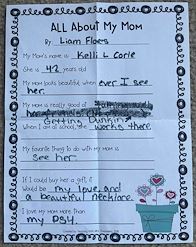 All About My Mom
By: Liam Floes
My Mom's name is Kelli L Corle
She is 42 years old
My mom looks beautiful when ever I see
her.
My mom is really good at
Getting Dunking
When I am at school, she works there.
My favorite thing to do with my mom is
see her.
If I could buy her a gift, it
Would be my love and
a beautiful necklace.
I love my mom more than
my DS4